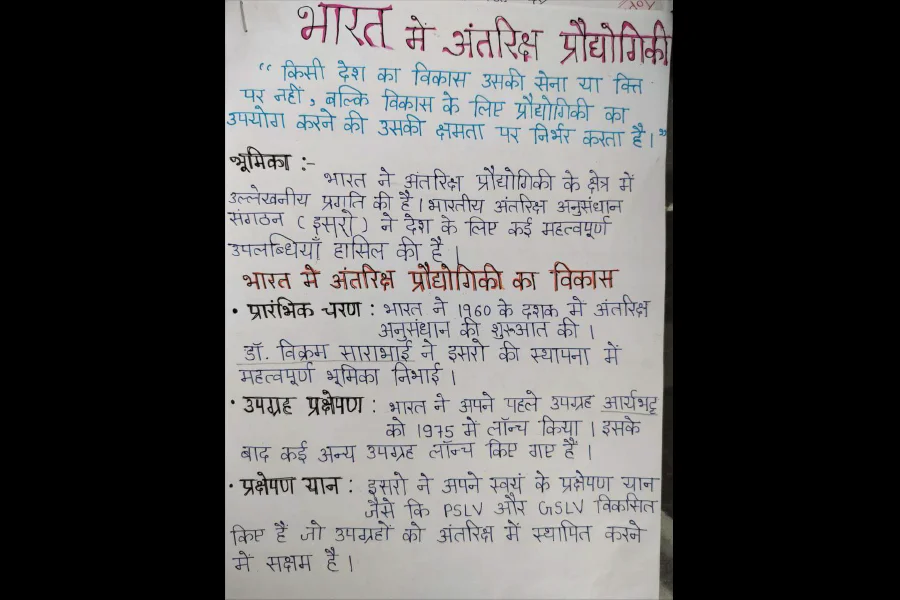 भारत में अंतरिक्ष प्रौद्योगिकी
“ किसी देश का विकास उसकी सेना या वित्त
पर नहीं, बल्कि विकास के लिए प्रौद्योगिकी का
उपयोग करने की उसकी क्षमता पर निर्भर करता है।”
भूमिका :-
भारत ने अंतरिक्ष प्रौद्योगिकी के क्षेत्र में
उल्लेखनीय प्रगति की है। भारतीय अंतरिक्ष अनुसंधान
संगठन (इसरो) ने देश के लिए कई महत्वपूर्ण
उपलब्धियाँ हासिल की है।
भारत में अंतरिक्ष प्रौद्योगिकी का विकास
• प्रारंभिक चरण : भारत ने 1960 के दशक में अंतरिक्ष
अनुसंधान की शुरुआत की।
डॉ. विक्रम साराभाई ने इसरो की स्थापना में
महत्वपूर्ण भूमिका निभाई।
• उपग्रह प्रक्षेपण : भारत ने अपने पहले उपग्रह आर्यभट्ट
को 1975 में लॉन्च किया। इसके
बाद कई अन्य उपग्रह लॉन्च किए गए हैं।
• प्रक्षेपण यान : इसरो ने अपने स्वयं के प्रक्षेपण यान
जैसे कि PSLV और GSLV विकसित
किए हैं जो उपग्रहों को अंतरिक्ष में स्थापित करने
में सक्षम है।